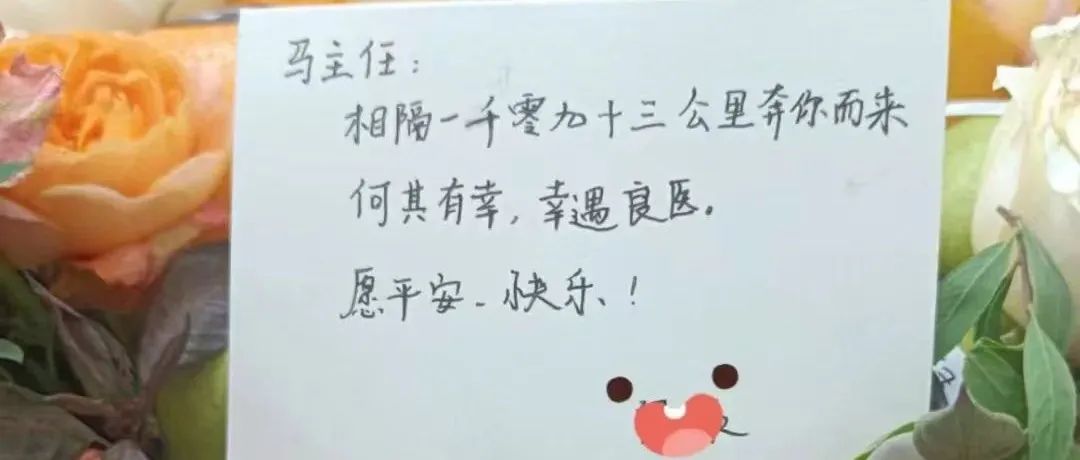 马主任：
相隔一千零九十三公里奔你而来
何其有幸，幸遇良医。
愿平安、快乐！